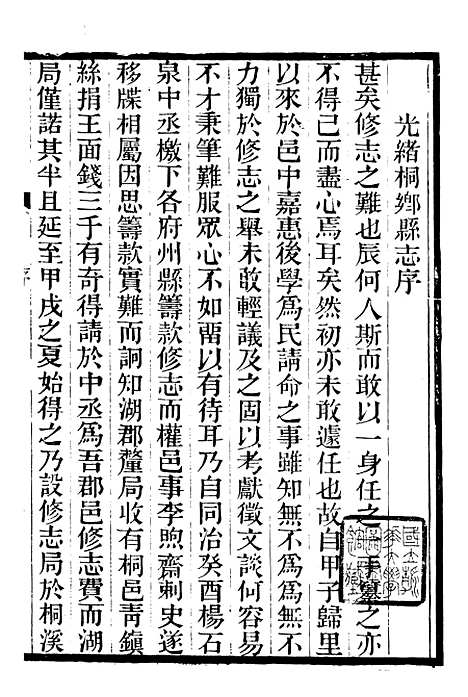 光緒桐鄉縣志序
甚矣修志之難也辰何人斯而敢以一身任之手纂之亦
不得已而盡心焉耳矣然初亦未敢遽任也故自甲子歸里
以來於邑中嘉惠後學爲民請命之事雖知無不爲爲無不
力獨於修志之舉未敢輕議及之固以考獻徵文談何容易
不才秉筆難服眾心不如畱以有待耳乃自同治癸酉楊石
泉中丞檄下各府州縣籌款修志而權邑事李煦齋刺史遂
移牒相屬因思籌款實難而詗知湖郡釐局收有桐邑青鎭
絲捐王面錢三千有奇得請於中丞爲吾郡邑修志費而湖
局僅諾其半且延至甲戌之夏始得之乃設修志局於桐溪
序